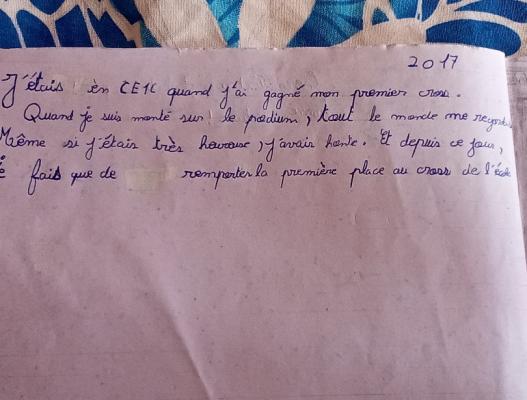 2017
J'étais en CE1C quand j'ai gagné mon premier cross.
Quand je suis monté sur le podium, tout le monde me
Même si j'étais très heureuse, j'avais honte. Et depuis ce jour,
fais que de remporter la première place au cross de l'école